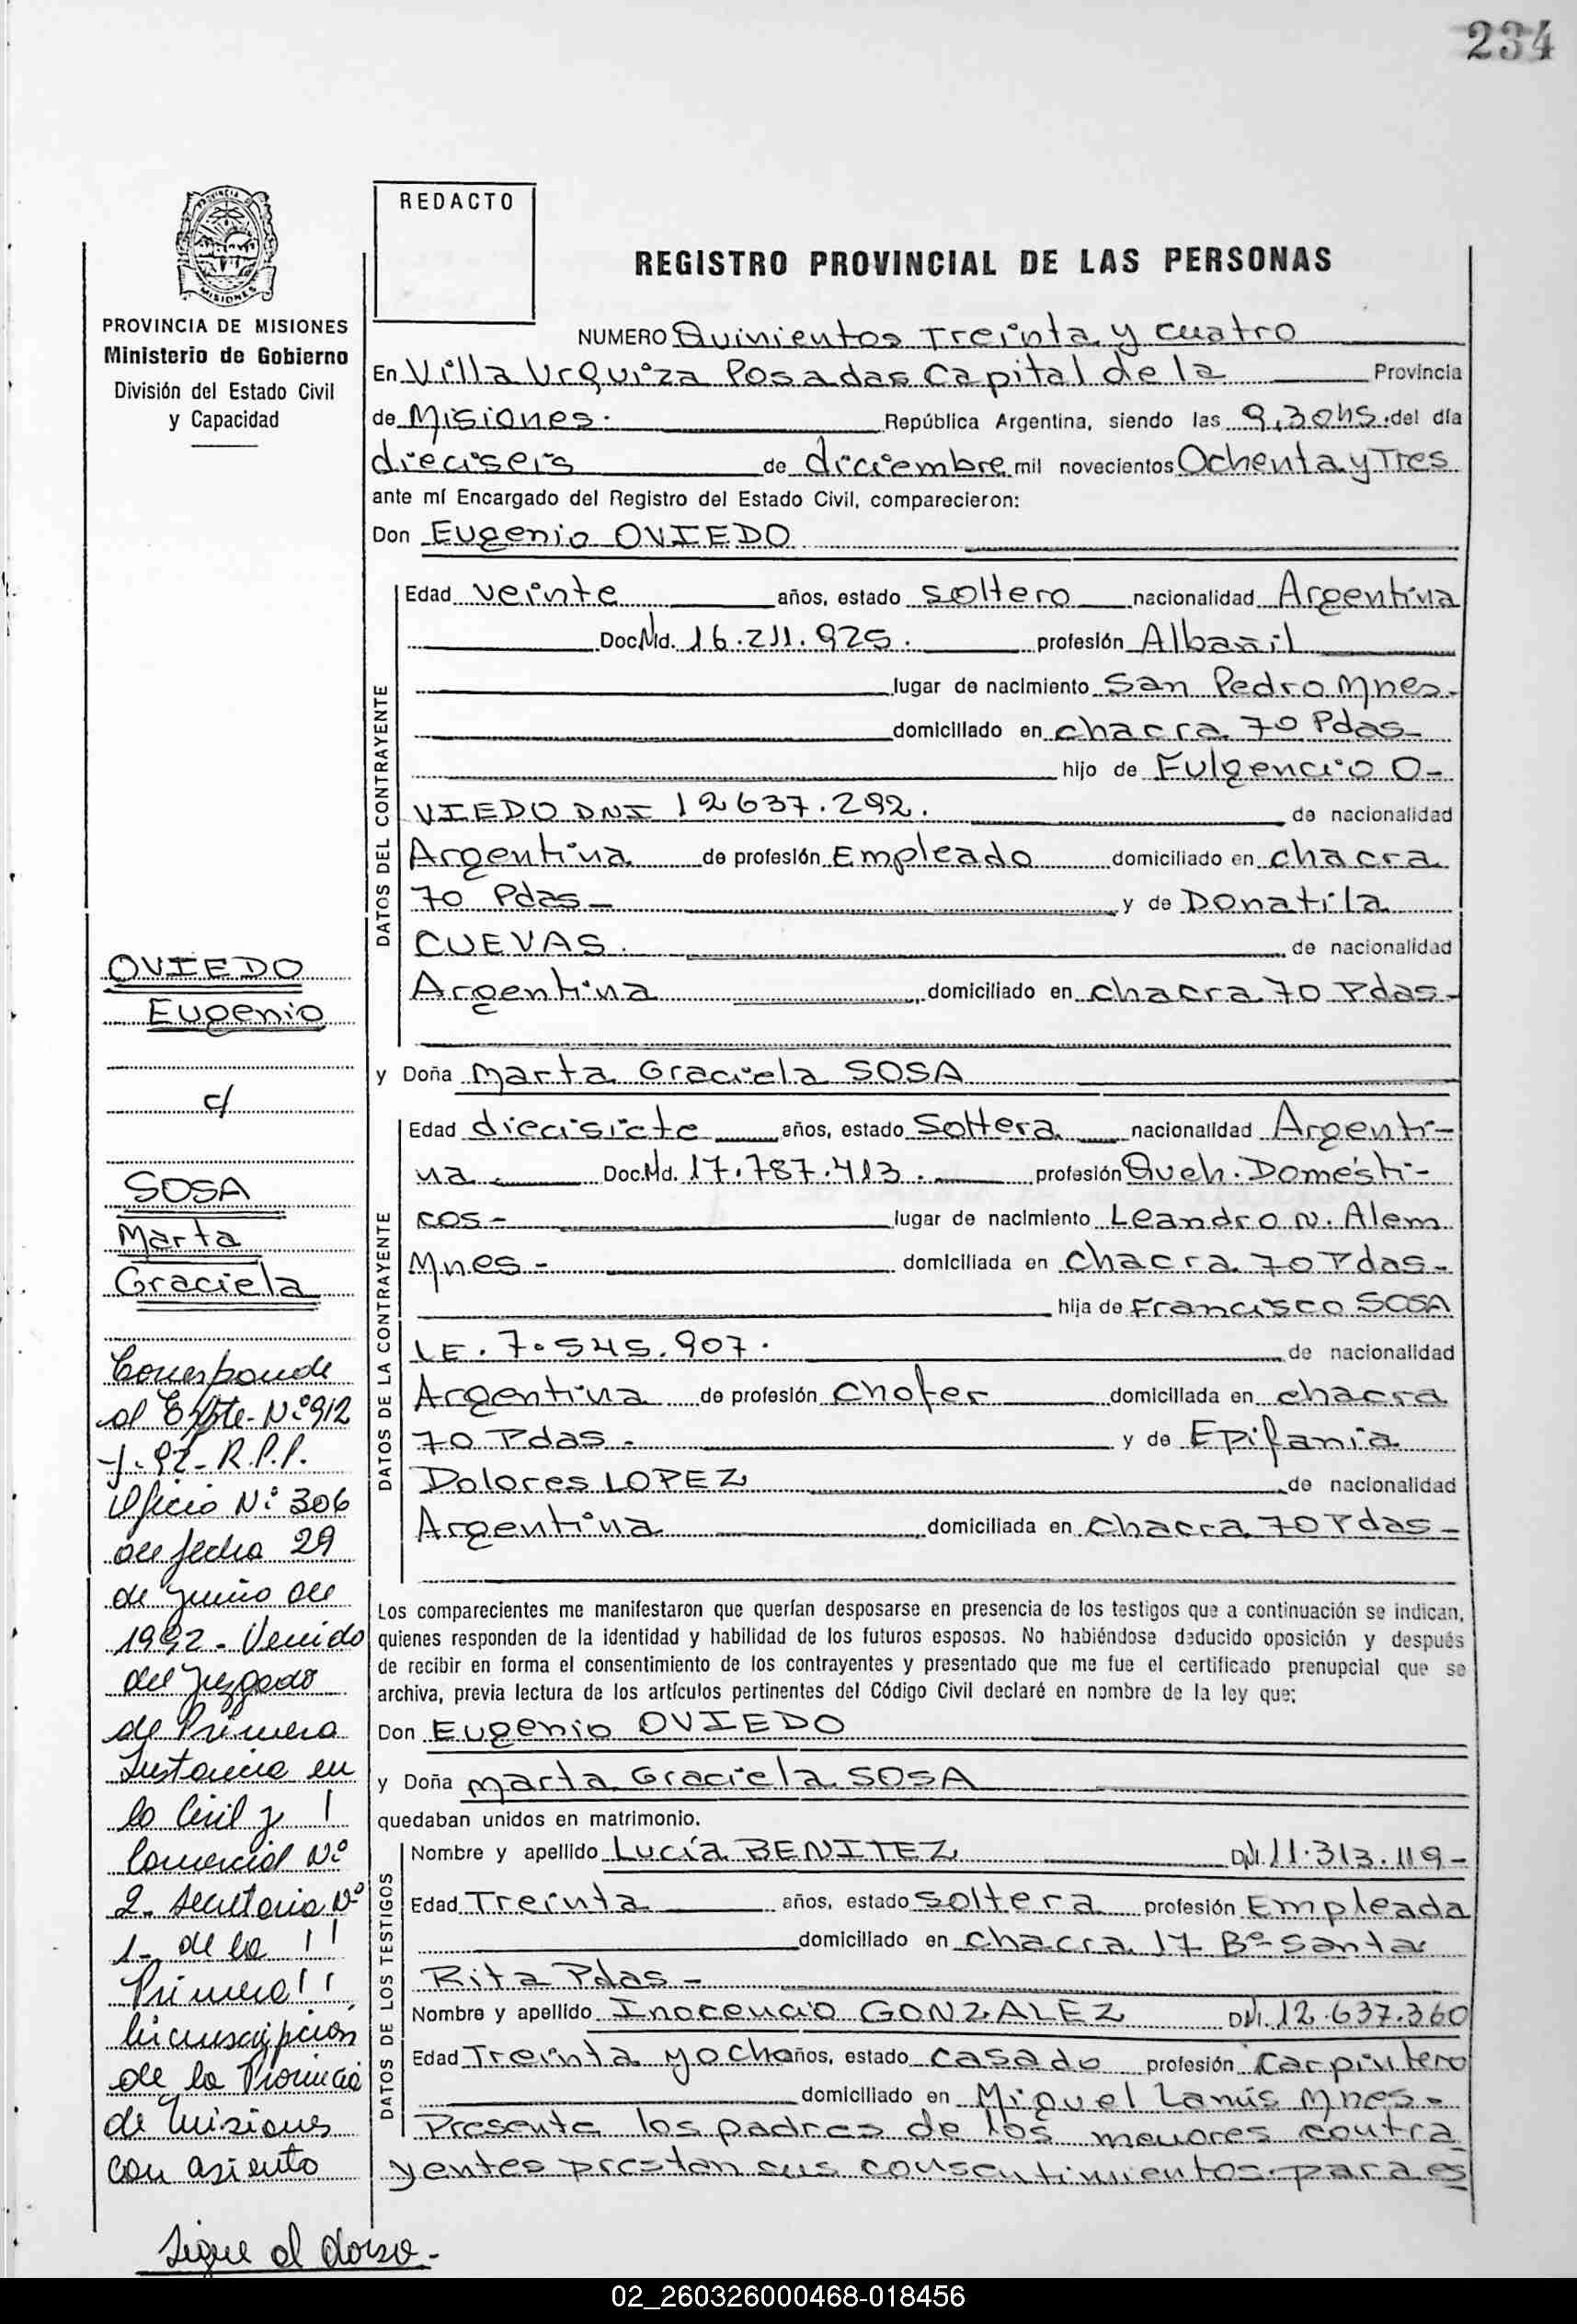 234
REDACTO
REGISTRO PROVINCIAL DE LAS PERSONAS
PROVINCIA DE MISIONES
Ministerio de Gobierno
División del Estado Civil
y Capacidad
NUMERO Quinientos Treinta y cuatro
En Villa Urquiza Posadas Capital de la Provincia
de Misiones. República Argentina, siendo las 9,30hs. del día
dieciseis de diciembre mil novecientos Ochenta y Tres
ante mí Encargado del Registro del Estado Civil, comparecieron:
Don Eugenio OVIEDO
DATOS DEL CONTRAYENTE
Edad veinte años, estado soltero nacionalidad Argentina
Doc.Nd. 16.211.925. profesión Albañil
lugar de nacimiento San Pedro Mnes.
domiciliado en chacra 70 Pdas-
hijo de Fulgencio O-
VIEDO DNI 12637.292. de nacionalidad
Argentina de profesión Empleado domiciliado en chacra
70 Pdas- y de Donatila
CUEVAS. de nacionalidad
Argentina domiciliado en chacra 70 Pdas-
y Doña Marta Graciela SOSA
DATOS DE LA CONTRAYENTE
Edad diecisiete años, estado Soltera nacionalidad Argenti-
na Doc.Nd. 17.787.413. profesión Queh. Domésti-
cos- lugar de nacimiento Leandro N. Alem
Mnes- domiciliada en chacra 70 Pdas-
hija de Francisco SOSA
LE. 7.545.907. de nacionalidad
Argentina de profesión chofer domiciliada en chacra
70 Pdas. y de Epifania
Dolores LOPEZ de nacionalidad
Argentina domiciliada en chacra 70 Pdas-
Los comparecientes me manifestaron que querían desposarse en presencia de los testigos que a continuación se indican,
quienes responden de la identidad y habilidad de los futuros esposos. No habiéndose deducido oposición y después
de recibir en forma el consentimiento de los contrayentes y presentado que me fue el certificado prenupcial que se
archiva, previa lectura de los artículos pertinentes del Código Civil declaré en nombre de la ley que:
Don Eugenio OVIEDO
y Doña Marta Graciela SOSA
quedaban unidos en matrimonio.
DATOS DE LOS TESTIGOS
Nombre y apellido Lucía BENITEZ DNI. 11.313.119-
Edad Treinta años, estado soltera profesión Empleada
domiciliado en chacra 17 Bº Santa
Rita Pdas-
Nombre y apellido Inocencio GONZALEZ DNI. 12.637.360
Edad Treinta y ocho años, estado casado profesión Carpintero
domiciliado en Miguel Lanús Mnes-
Presente los padres de los menores contra
yentes prestan sus consentimientos para es
OVIEDO
Eugenio
c/
SOSA
Marta
Graciela
Corresponde
al Expte- Nº 912
-J-92- R.P.P.
Oficio Nº 306
de fecha 29
de junio de
1992- Venido
del Juzgado
de Primera
Instancia en
lo Civil y
Comercial Nº
2- Secretaria Nº
1- de la
Primera
Circunscripcion
de la Provincia
de Misiones
con asiento
Sigue al dorso-
02_260326000468-018456